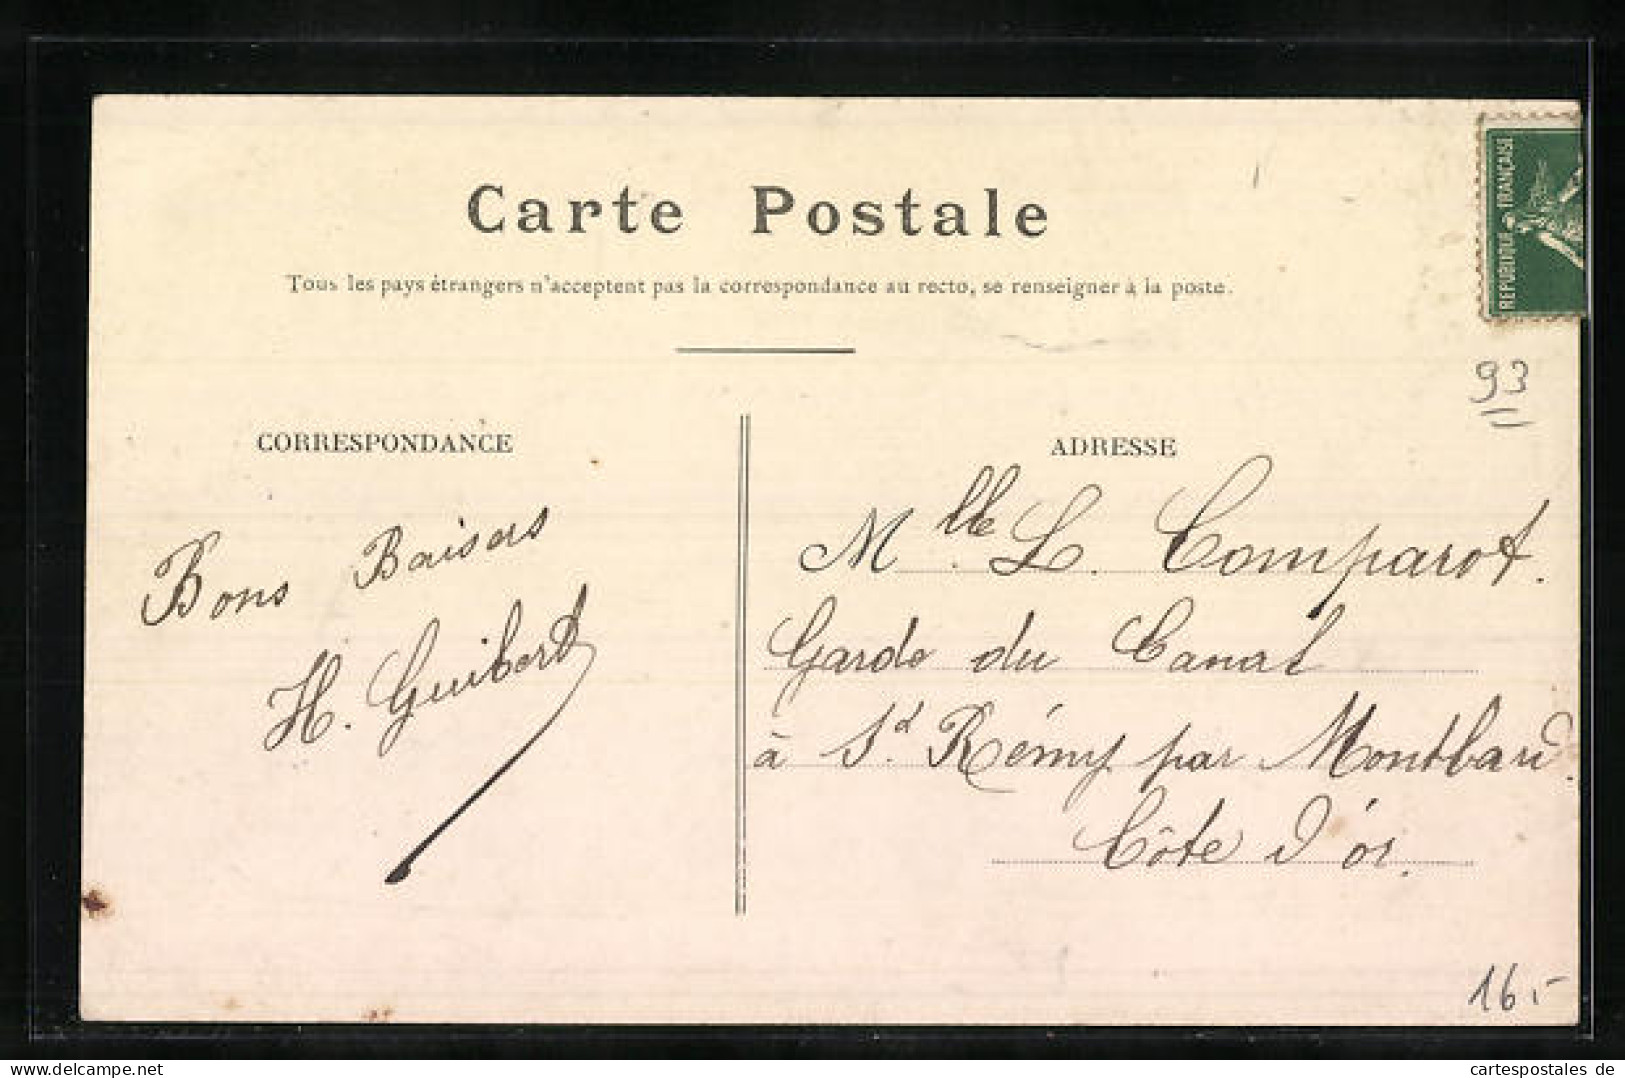 Carte Postale
Tous les pays étrangers n'acceptent pas la correspondance au recto, se renseigner à la poste.
REPUBLIQUE FRANÇAISE
93
CORRESPONDANCE
ADRESSE
Bons Baisers
H. Guibert
Mlle L. Comparot.
Garde du Canal
à St Rémy par Montbard.
Côte d'or.
16.-
www.cartespostales.de